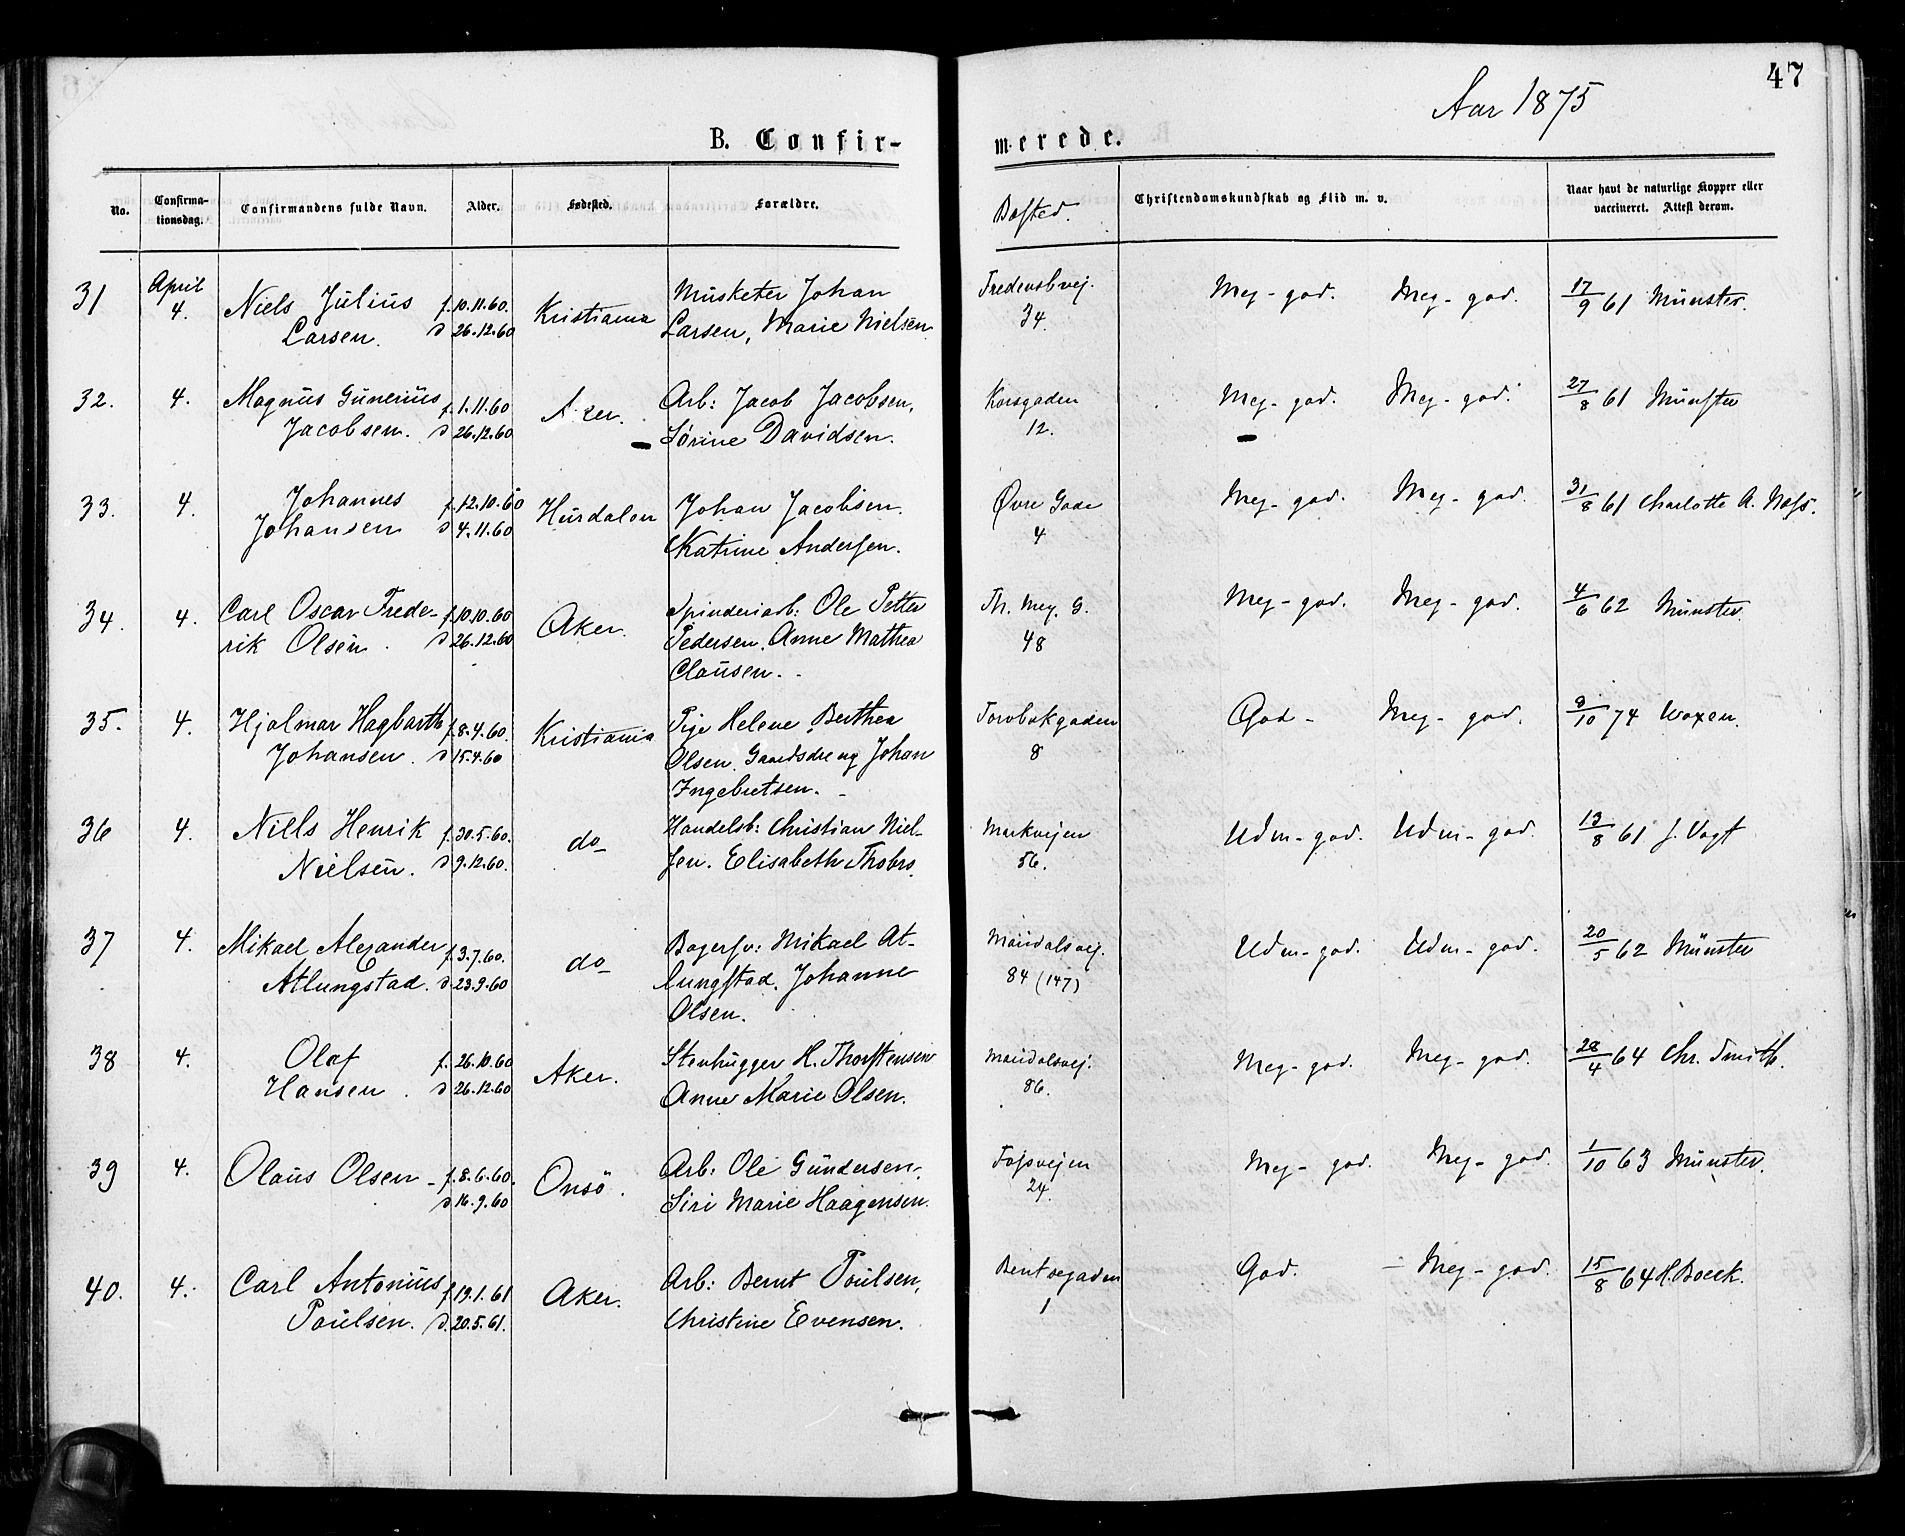 47
Aar 1875
B. Confir-
merede.
No.
Confirma-
tionsdag.
Confirmandens fulde Navn.
Alder.
Fødested.
Forældre.
Bosted.
Christendomskundskab og Flid m. v.
Naar havt de naturlige Kopper eller
vaccineret. Attest derom.
31 April Niels Julius f. 10.11.60. Kristiania Musketer Johan Fredensbvej. Meg-god. Meg-god. 17/9 61 Münster.
4. Larsen. d 26.12.60 Larsen, Marie Nielsen 34.
32. 4. Magnus Gunerius f. 1.11.60 Aker. Arb: Jacob Jacobsen, Korsgaden Meg-god. Meg-god. 27/8 61 Münster
Jacobsen. d 26.12.60 Sørine Davidsen. 12.
33. 4. Johannes f. 12.10.60 Hurdalen Johan Jacobsen. Øvre Gade Meg-god. Meg-god. 31/8 61 Charlotte A. Næss.
Johansen d 4.11.60 Katrine Andersen. 4
34. 4. Carl Oscar Frede- f. 10.10.60 Aker. Spinderiarb: Ole Petter Th. Mey. G. Meg-god. Meg-god. 4/6 62 Münster.
rik Olsen. d 26.12.60 Pedersen. Anne Mathea 48
Clausen.
35. 4. Hjalmar Hagbarth f. 8.4.60. Kristiania Pige Helene Berthea Torvbakgaden God- Meg-god. 9/10 74 Voxen.
Johansen. d 15.4.60 Olsen. Gaardsdreng Johan 8
Ingebretsen.
36 4. Niels Henrik f. 30.5.60. do Handelsb: Christian Niel- Markvejen Udm-god. Udm-god. 13/8 61 J. Vogt
Nielsen. d 9.12.60. sen. Elisabeth 56.
37 4. Mikael Alexander f. 3.7.60. do Bagersv: Mikael At- Maridalsvej. Udm-god. Udm-god. 20/5 62 Münster
Atlungstad. d 23.9.60 lungstad. Johanne 84 (147)
Olsen.
38 4. Olaf f. 26.10.60 Aker. Stenhugger H. Thorstensen Maridalsvej. Meg-god. Meg-god. 28/4 64 Chr. Smith.
Hansen. d 26.12.60 Anne Marie Olsen. 86.
39 4. Olaus Olsen- f. 8.6.60. Onsö. Arb: Ole Gundersen, Fossvejen Meg-god. Meg-god. 1/10 63 Münster.
d 16.9.60 Siri Marie Haagensen. 24.
40. 4. Carl Antonius f. 19.1.61 Aker. Arb: Bernt Poulsen, Bentsegaden God. - Meg-god. 15/8 64 H. Boeck.
Poulsen. d. 20.5.61. Christine Evensen. 1